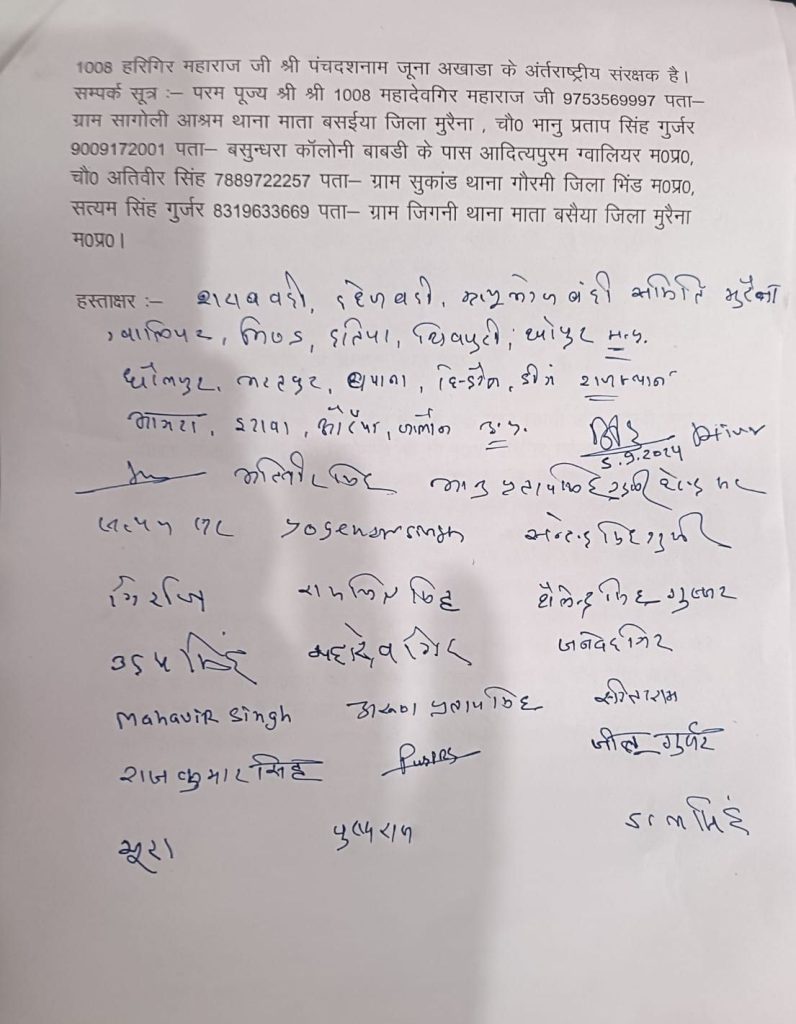 1008 हरिगिर महाराज जी श्री पंचदशनाम जूना अखाडा के अंर्तराष्ट्रीय संरक्षक है।
सम्पर्क सूत्र :– परम पूज्य श्री श्री 1008 महादेवगिर महाराज जी 9753569997 पता–
ग्राम सागोली आश्रम थाना माता बसईया जिला मुरैना , चौ0 भानु प्रताप सिंह गुर्जर
9009172001 पता– बसुन्धरा कॉलोनी बाबडी के पास आदित्यपुरम ग्वालियर म0प्र0,
चौ0 अतिवीर सिंह 7889722257 पता– ग्राम सुकांड थाना गौरमी जिला भिंड म0प्र0,
सत्यम सिंह गुर्जर 8319633669 पता– ग्राम जिगनी थाना माता बसैया जिला मुरैना
म0प्र0।
हस्ताक्षर :– शराब बंदी, दहेज बंदी, मृत्युभोज बंदी समिति मुरैना
ग्वालियर, भिण्ड, दतिया, शिवपुरी, श्योपुर म.प्र.
धौलपुर, भरतपुर, बयाना, हिन्डौन, डीग राजस्थान
आगरा, इटावा, औरैया, जालौन उ.प्र.
5.9.2024
भानु प्रताप सिंह
सत्येन्द्र सिंह गुर्जर
गिर्राज
शैलेन्द्र सिंह गुर्जर
महादेव गिर
Mahavir Singh अरूण प्रताप सिंह सीताराम
राजकुमार सिंह जीतू गुर्जर
भूरा पुष्पराज